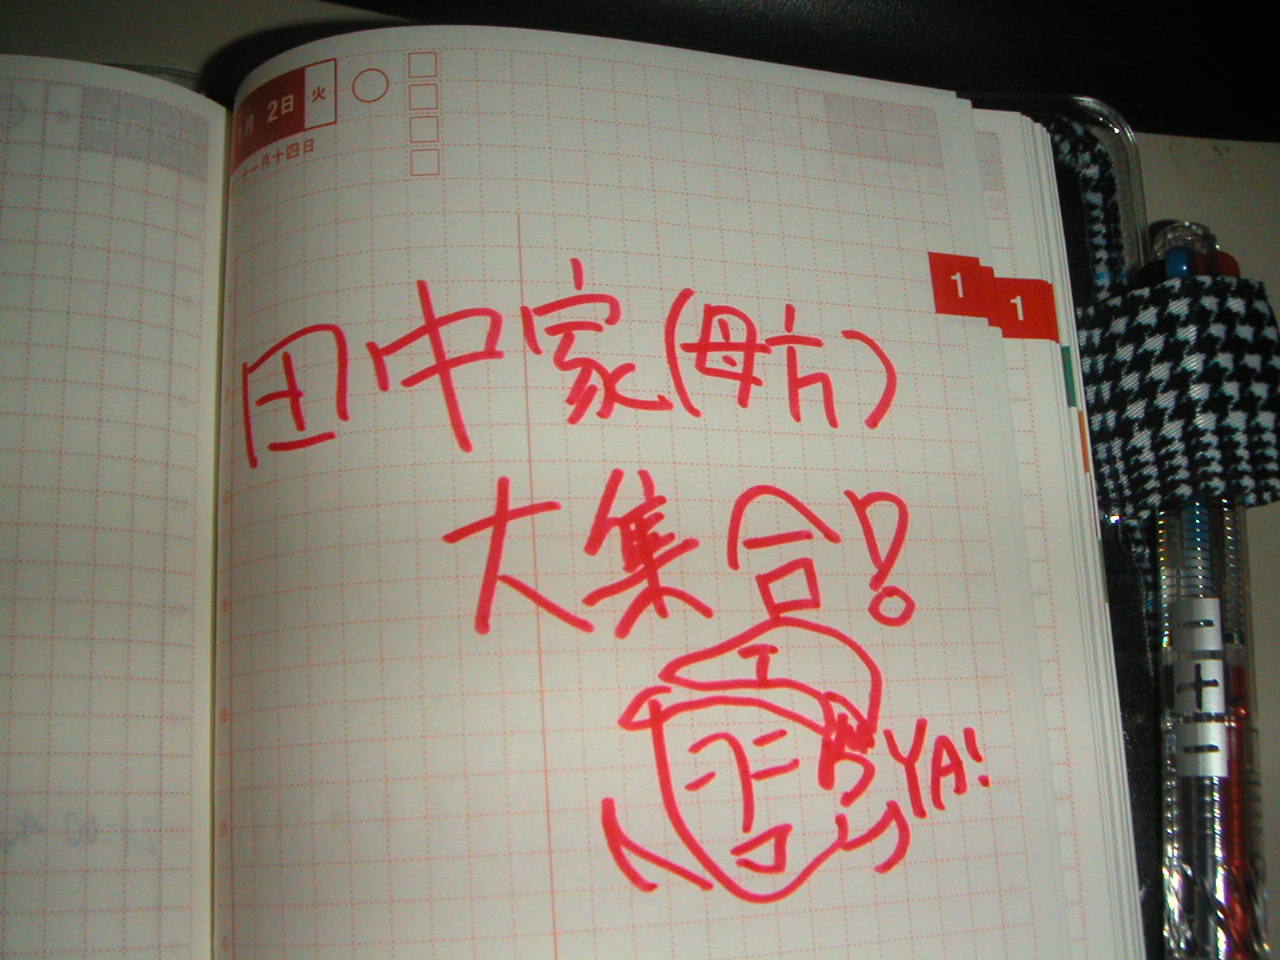 1月 2日 火
十一月十四日
1
1
田中家(母方)
大集合!
T
YA!